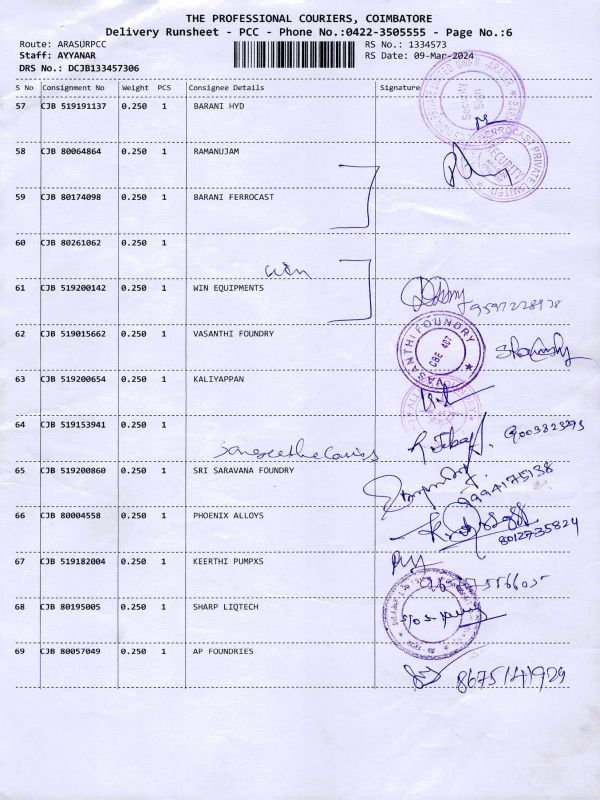 THE PROFESSIONAL COURIERS, COIMBATORE
Delivery Runsheet - PCC - Phone No.:0422-3505555 - Page No.:6
Route: ARASURPCC RS No.: 1334573
Staff: AYYANAR RS Date: 09-Mar-2024
DRS No.: DCJB133457306
S No Consignment No Weight PCS Consignee Details Signature
57 CJB 519191137 0.250 1 BARANI HYD
58 CJB 80064864 0.250 1 RAMANUJAM
SECURITY
59 CJB 80174098 0.250 1 BARANI FERROCAST
60 CJB 80261062 0.250 1
win
61 CJB 519200142 0.250 1 WIN EQUIPMENTS
9597228978
62 CJB 519015662 0.250 1 VASANTHI FOUNDRY
VASANTHI FOUNDRY
CBE 407
63 CJB 519200654 0.250 1 KALIYAPPAN
64 CJB 519153941 0.250 1
9003823293
65 CJB 519200860 0.250 1 SRI SARAVANA FOUNDRY
9994175138
66 CJB 80004558 0.250 1 PHOENIX ALLOYS
8012735824
67 CJB 519182004 0.250 1 KEERTHI PUMPXS
68 CJB 80195005 0.250 1 SHARP LIQTECH
69 CJB 80057049 0.250 1 AP FOUNDRIES
8675141929